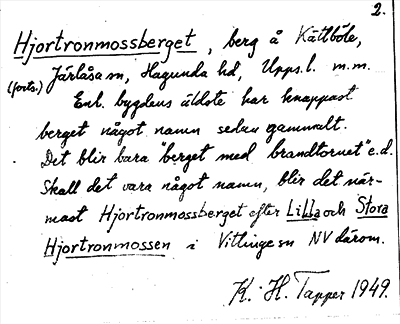 2.
Hjortronmossberget, berg å Kättböle,
(forts.) Järlåsa sn, Hagunda hd, Upps. l. m.m.
Enl. bygdens äldste har knappast
berget något namn sedan gammalt.
Det blir bara "berget med brandtornet" e.d.
Skall det vara något namn, blir det när-
mast Hjortronmossberget efter Lilla och Stora
Hjortronmossen i Vittinge sn NV därom.
K. H. Tapper 1949.